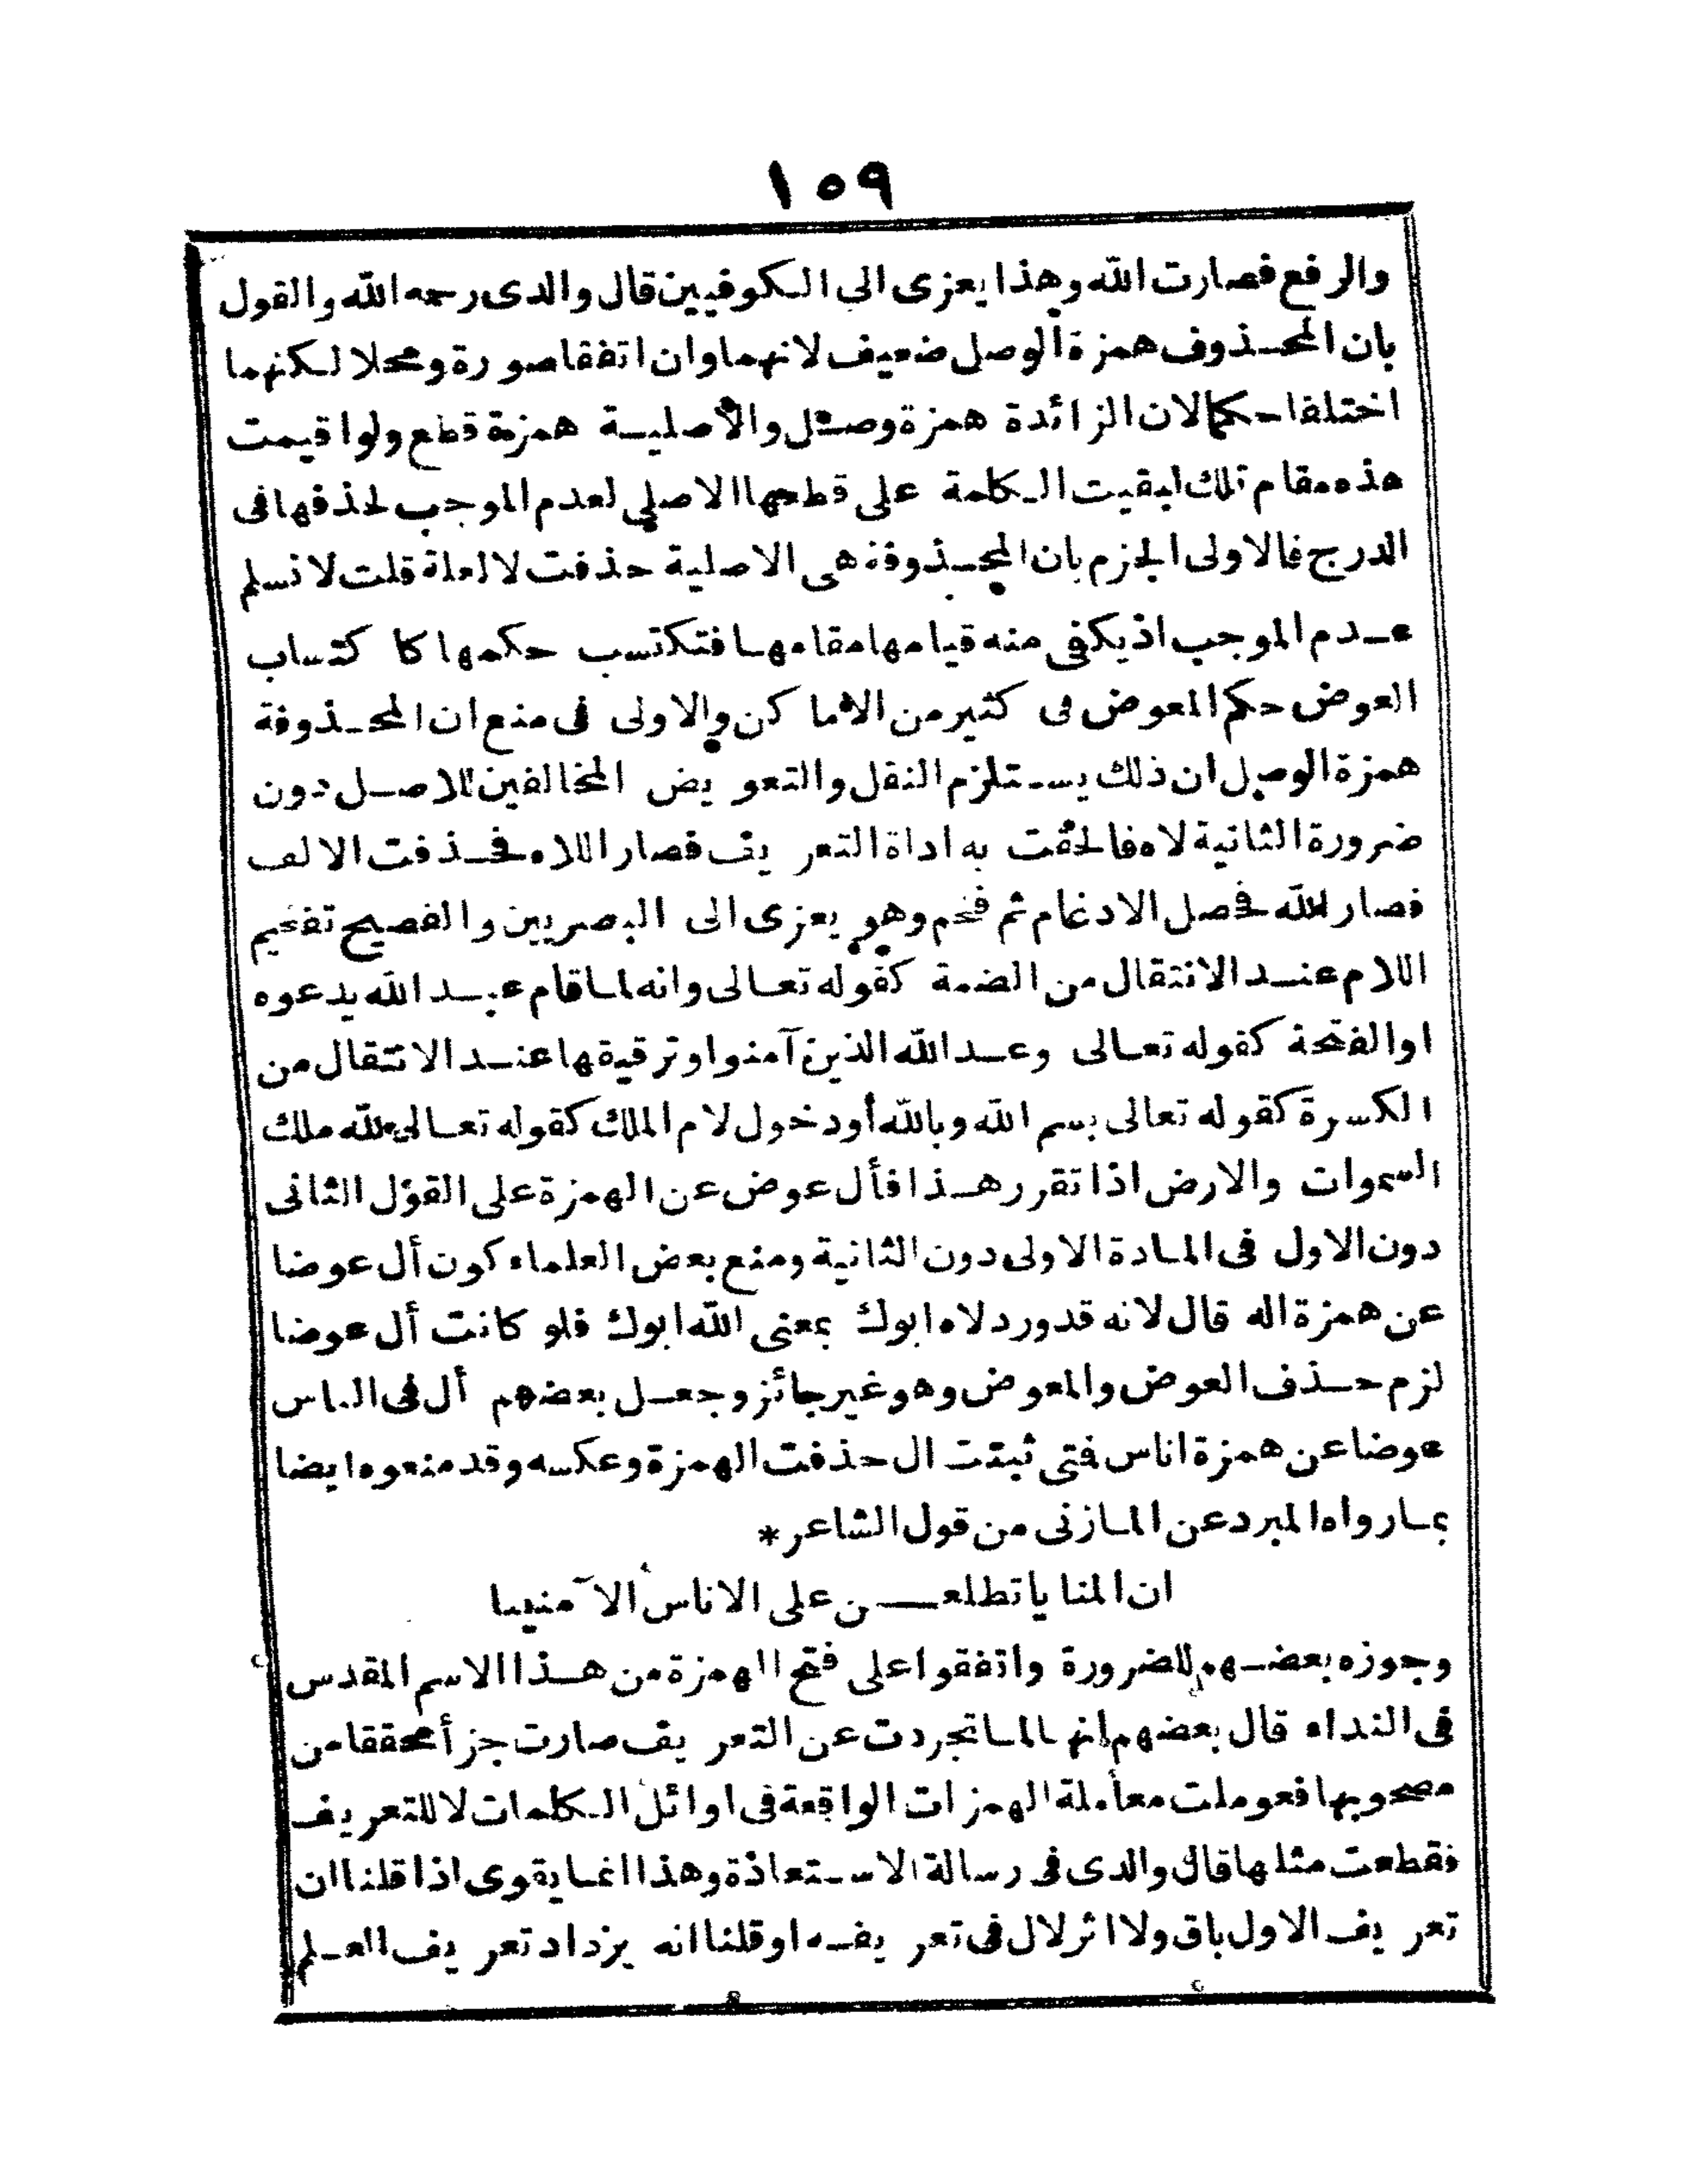 ١٥٩
والرفع فصارت الله وهذا يعزى الى الكوفيين قال والدى رحمه الله والقول
بان المحذوف همزة الوصل ضعيف لانهما وان اتفقا صورة ومحلا لكنهما
اختلفا حكما لان الزائدة همزة وصل والأصلية همزة قطع ولو اقيمت
هذه مقام تلك لبقيت الكلمة على قطعها الاصلى لعدم الموجب لحذفها فى
الدرج فالاولى الجزم بان المحذوفة هى الاصلية حذفت لا لعلة قلت لا نسلم
عدم الموجب اذ يكفى منه قيامها مقامها فتكتسب حكمها كا كتساب
العوض حكم المعوض فى كثير من الاما كن والاولى فى منع ان المحذوفة
همزة الوصل ان ذلك يستلزم النقل والتعويض المخالفين للاصل دون
ضرورة الثانية لاه فالحقت به اداة التعريف فصار اللاه فحذفت الالف
فصار لله فحصل الادغام ثم فخم وهو يعزى الى البصريين والفصيح تفخيم
اللام عند الانتقال من الضمة كقوله تعالى وانه لما قام عبد الله يدعوه
او الفتحة كقوله تعالى وعد الله الذين آمنوا وترقيقها عند الانتقال من
الكسرة كقوله تعالى بسم الله وبالله أو دخول لام الملك كقوله تعالى لله ملك
السموات والارض اذا تقرر هذا فأل عوض عن الهمزة على القول الثانى
دون الاول فى المادة الاولى دون الثانية ومنع بعض العلماء كون أل عوضا
عن همزة اله قال لانه قد ورد لاه ابوك بمعنى الله ابوك فلو كانت أل عوضا
لزم حذف العوض والمعوض وهو غير جائز وجعل بعضهم أل فى الناس
عوضا عن همزة اناس فتى ثبتت ال حذفت الهمزة وعكسه وقد منعوه ايضا
بما رواه المبرد عن المازنى من قول الشاعر *
ان المنا يا تطلعـــن على الاناس الآمنينا
وجوزه بعضهم للضرورة واتفقوا على فتح الهمزة من هذا الاسم المقدس
فى النداء قال بعضهم انها لما تجردت عن التعريف صارت جزأ محققا من
مصحوبها فعوملت معاملة الهمزات الواقعة فى اوائل الكلمات لا للتعريف
فقطعت مثلها قال والدى فى رسالة الاستعاذة وهذا انما يقوى اذا قلنا ان
تعريف الاول باق ولا اثر لال فى تعريفه او قلنا انه يزداد تعريف العلم